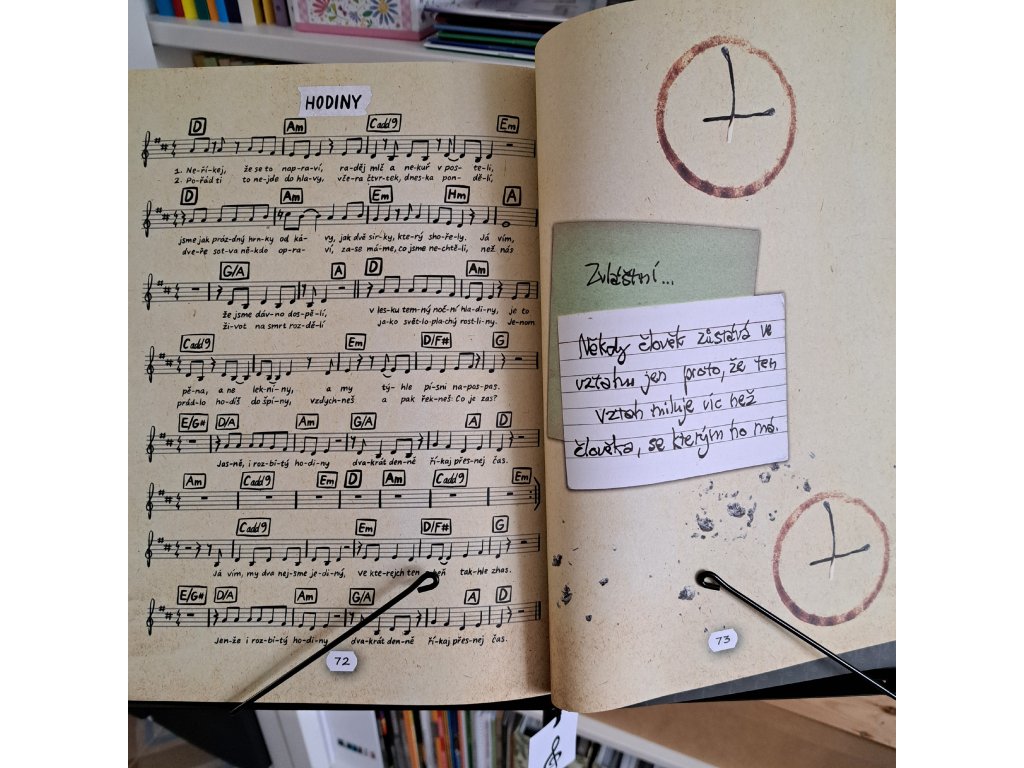 HODINY
D Am Cadd9 Em
1. Ne-ří-kej, že se to na-pra-ví, ra-děj mlč a ne-kuř v pos- te-li,
2. Po-řád ti to ne-jde do hla-vy, vče-ra čtvr-tek, dnes-ka pon- dě-lí,
D Am Em Hm A
jsme jak prázd-ný hrn-ky od ká- vy, jak dvě sir-ky, kte-rý sho-ře-ly. Já vím,
dve-ře sot-va ně-kdo op-ra- ví, za-se má-me, co jsme ne-chtě-li, než nás
G/A A D Am
že jsme dáv-no dos-pě-lí, v les-ku tem-ný noč-ní hla-di-ny, je to
ži-vot na smrt roz-dě-lí ja-ko svět-lo-pla-chý rost-li-ny. Je-nom
Cadd9 Em D/F# G
pě-na, a ne lek-ní-ny, a my tý- hle pí-sni na-pos-pas.
prád-lo ho-díš do špí-ny, vzdych-neš a pak řek-neš: Co je zas?
E/G# D/A Am G/A A D
Jas-ně, i roz-bi-tý ho-di-ny dva-krát den-ně ří-kaj přes-nej čas.
Am Cadd9 Em D Am Cadd9 Em
Cadd9 Em D/F# G
Já vím, my dva nej-sme je-di-ný, ve kte-rejch ten tak-hle zhas.
E/G# D/A Am G/A A D
Jen-že i roz-bi-tý ho-di-ny dva-krát den-ně ří-kaj přes-nej čas.
72
Zvláštní...
Někdy člověk zůstává ve
vztahu jen proto, že ten
vztah miluje víc než
člověka, se kterým ho má.
73